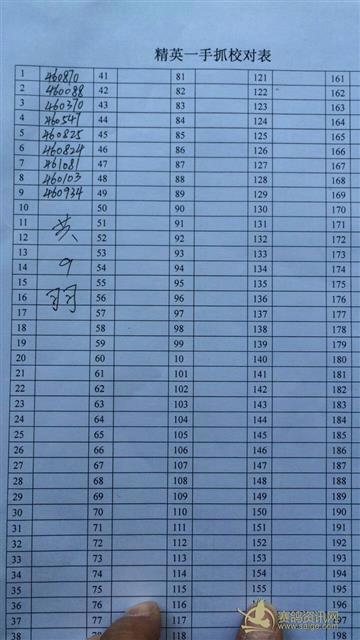 精英一手抓校对表
1 460870 41 81 121 161
2 460088 42 82 122 162
3 460370 43 83 123 163
4 460547 44 84 124 164
5 460825 45 85 125 165
6 460824 46 86 126 166
7 461081 47 87 127 167
8 460103 48 88 128 168
9 460934 49 89 129 169
10 50 90 130 170
11 51 91 131 171
12 共 52 92 132 172
13 53 93 133 173
14 9 54 94 134 174
15 55 95 135 175
16 羽 56 96 136 176
17 57 97 137 177
18 58 98 138 178
19 59 99 139 179
20 60 10 140 180
21 61 101 141 181
22 62 102 142 182
23 63 103 143 183
24 64 104 144 184
25 65 105 145 185
26 66 106 146 186
27 67 107 147 187
28 68 108 148 188
29 69 109 149 189
30 70 110 150 190
31 71 111 151 191
32 72 112 152 192
33 73 113 153 193
34 74 114 154 194
35 75 115 155 195
36 76 116 196
37 77 117 197
38 78 118 198
赛鸽资讯网
www.saige.com